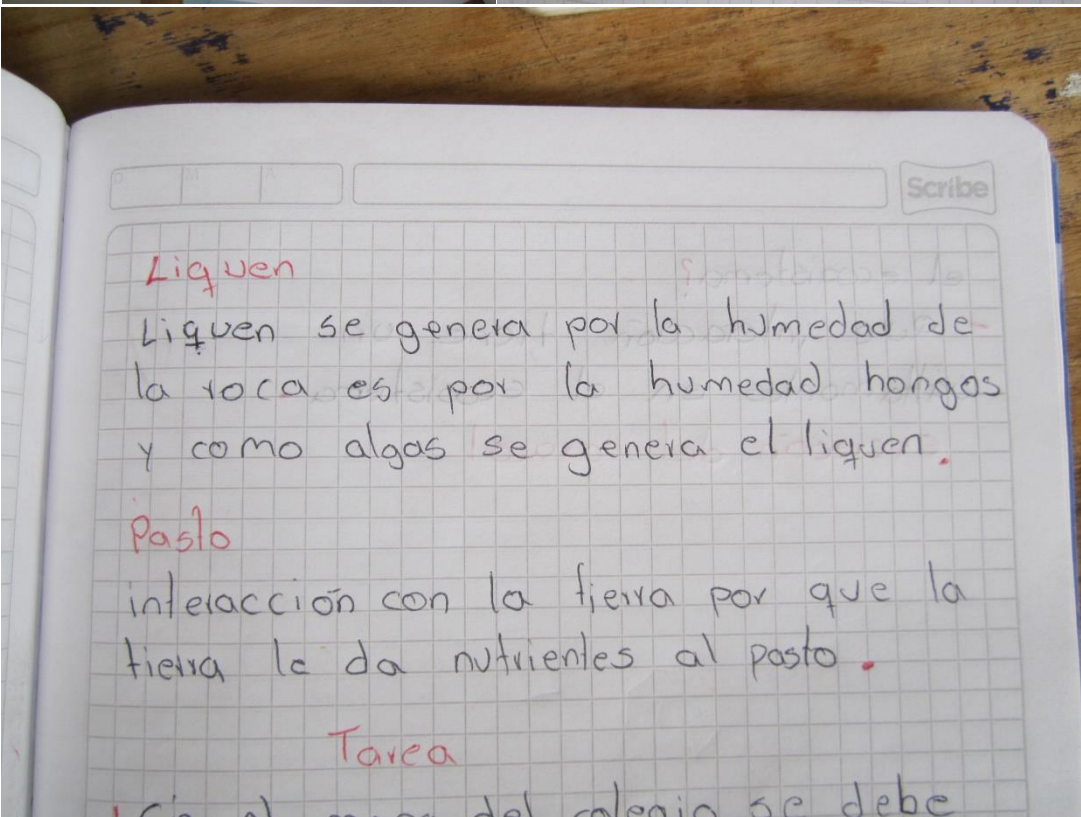 Scribe
Liquen
Liquen se genera por la humedad de
la roca es por la humedad hongos
y como algas se genera el liquen.
Pasto
interacción con la tierra por que la
tierra le da nutrientes al pasto.
Tarea
del colegio se debe